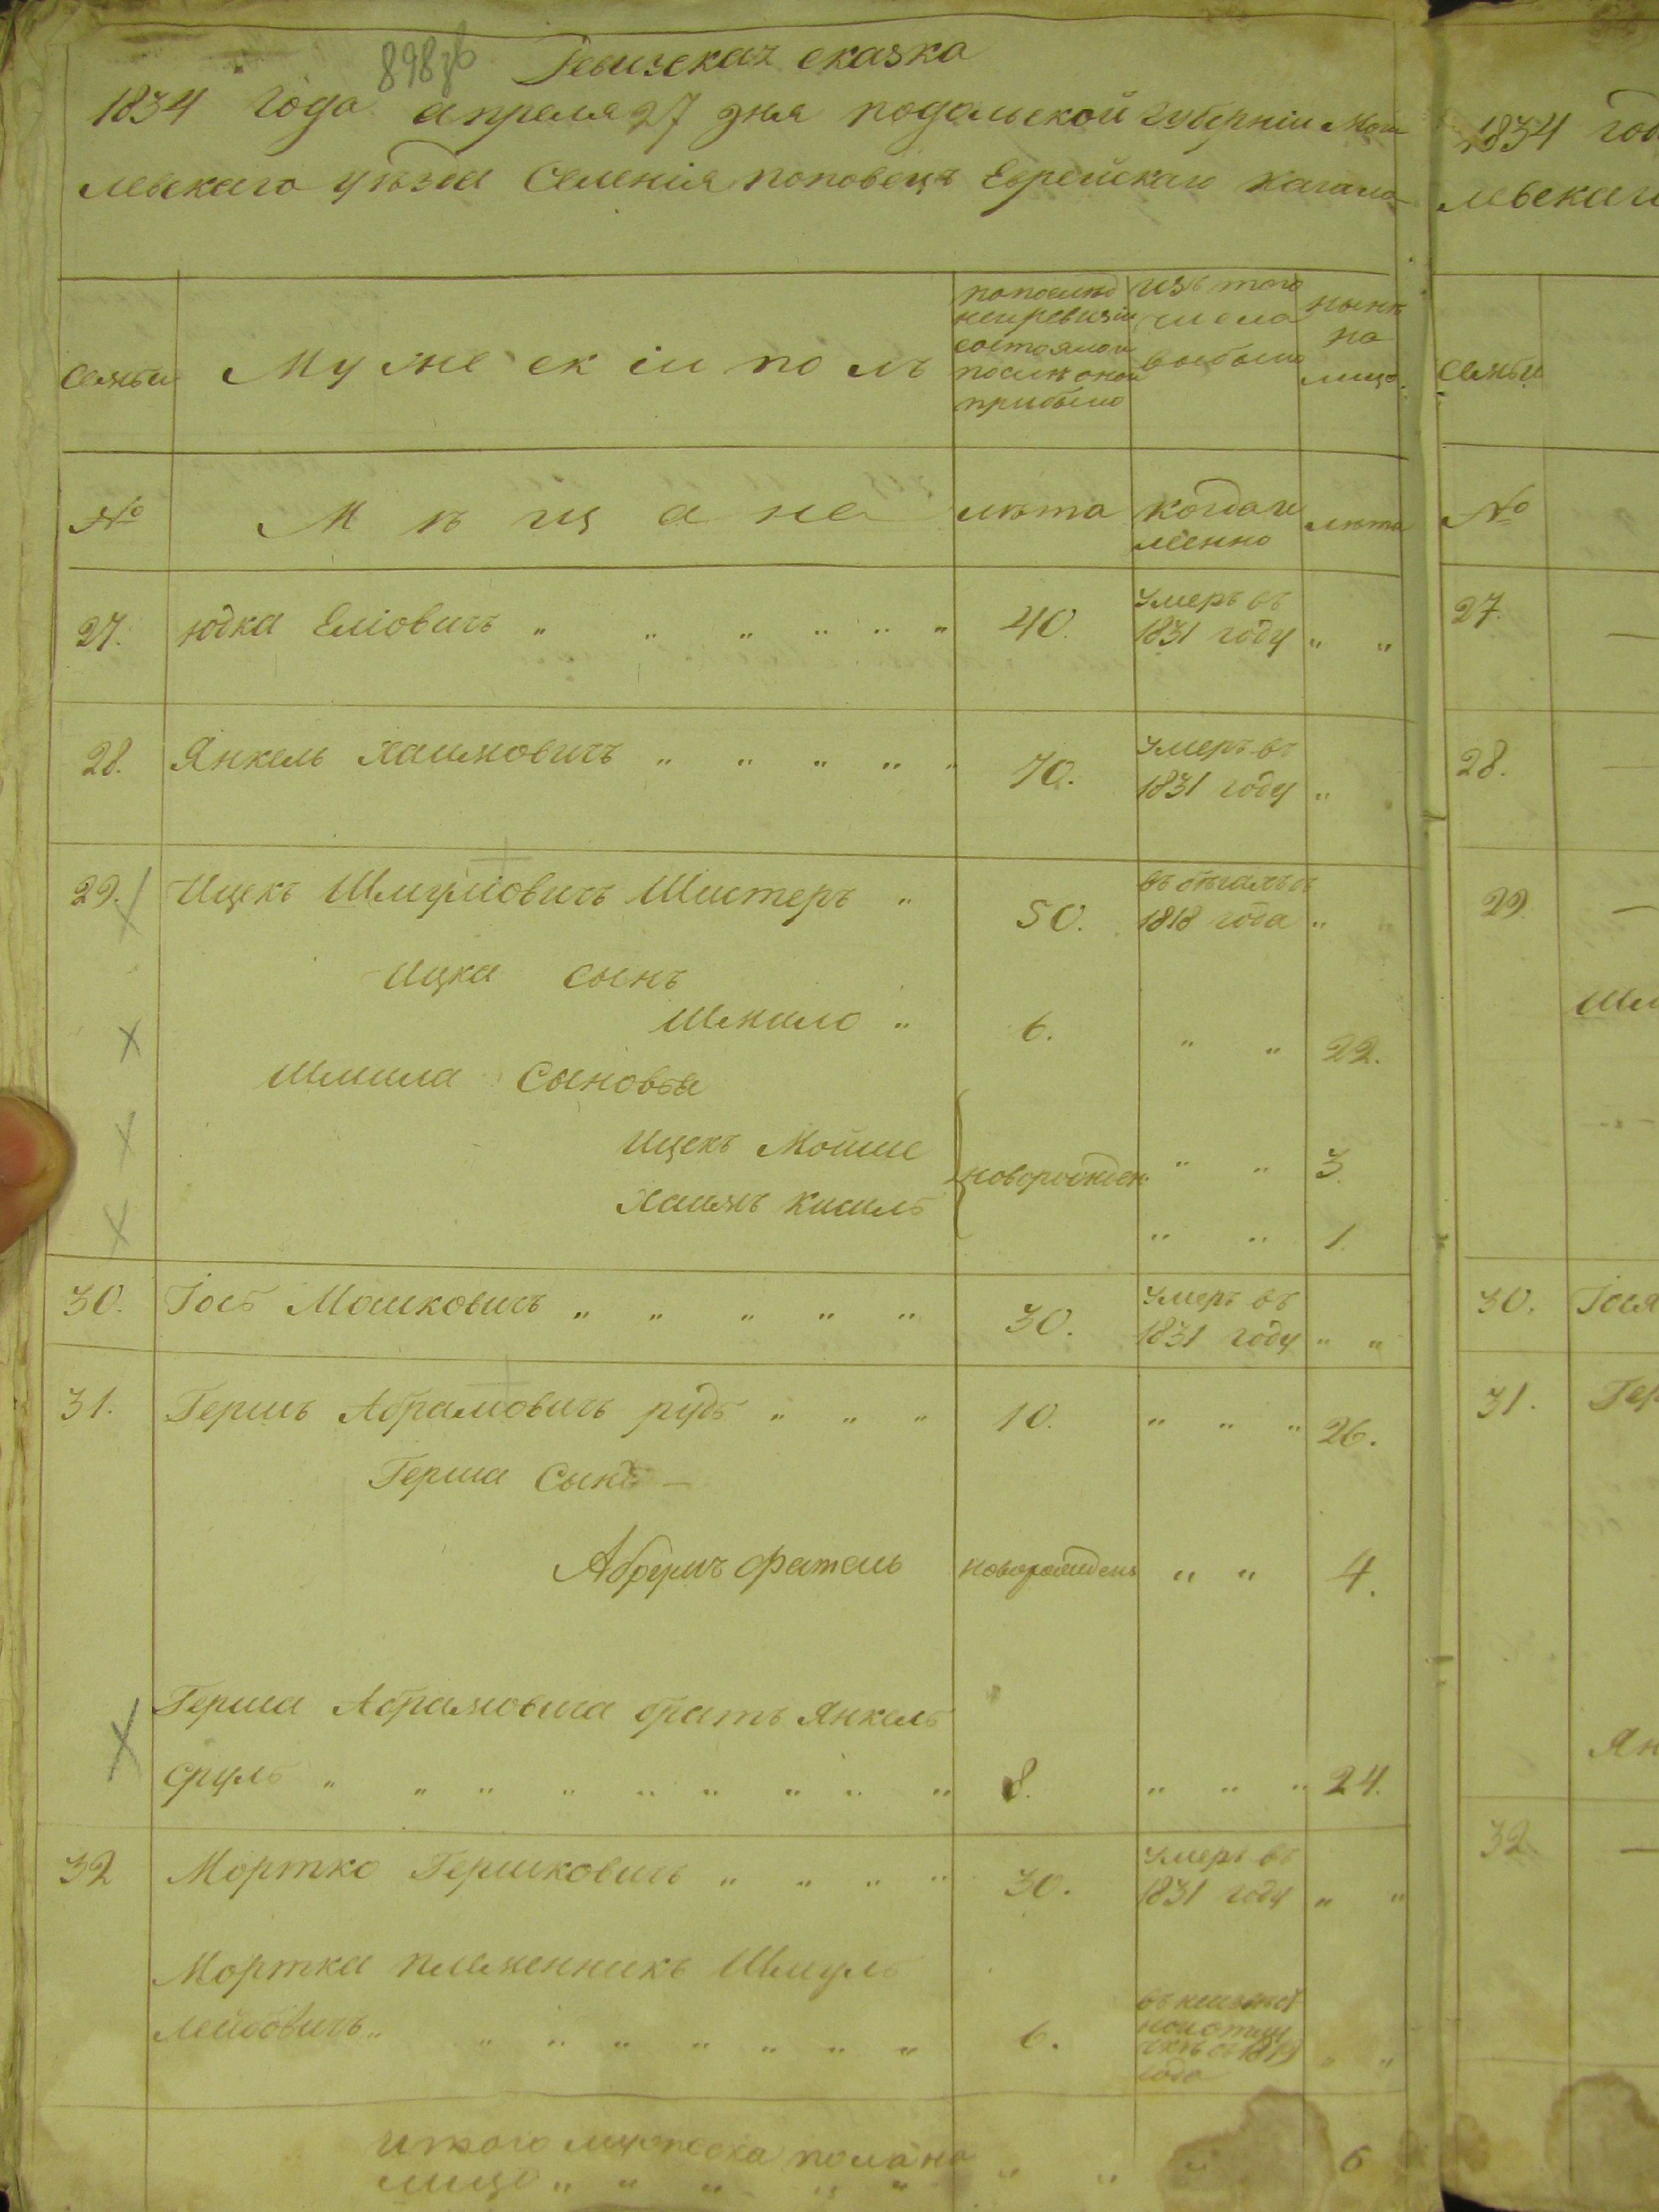 898
Ревизская сказка
1834 года апреля 27 дня подольской губерніи Моги
левскаго уѣзда Селенія поповецъ Еврейскаго Кагала
Семьи
Мужескій полъ
по послѣд
ней ревизіи
состояло и
послѣ оной
прибыло
изъ того
числа
выбыло
нынѣ
на
лицо.
№
Мѣщане
лѣта
когда и
менно
лѣта
27. Юдка Еліовичъ " " " " " " 40. умеръ въ
1831 году " "
28. Янкель Хаимовичъ " " " " " 70. умеръ въ
1831 году "
29. Ицекъ Шмуліовичъ Шистеръ " 50. въ бѣгахъ съ
1818 года "
Ицка сынъ
Шмило " 6. " " 22.
Шмила Сыновья
Ицекъ Мойше " " 3.
новорожден.
Хаимъ Кисиль " " 1.
30. Іось Мошковичъ " " " " " 30. умеръ въ
1831 году " "
31. Гершъ Абрамовичъ рудь " " " 10. " " " 26.
Герша Сынъ
Абрумъ Фатель новорожденъ " " 4.
Герша Абрамовича братъ Янкель
Сруль " " " " " " " " " 8. " " " 24.
32 Мортко Гершковичъ " " " " 30. умеръ въ
1831 году " "
Мортка племенникъ Шмуль
Лейбовичъ " " " " " " " " 6. въ неизвѣст
ной отлу
чкѣ съ 1819
года " "
Итого мужеска пола на
лицо " " " " " " " " 6
1834 год
левскаго
Семьи
№
27.
28.
29
Шм
30. Іося
31. Гер
Ян
32